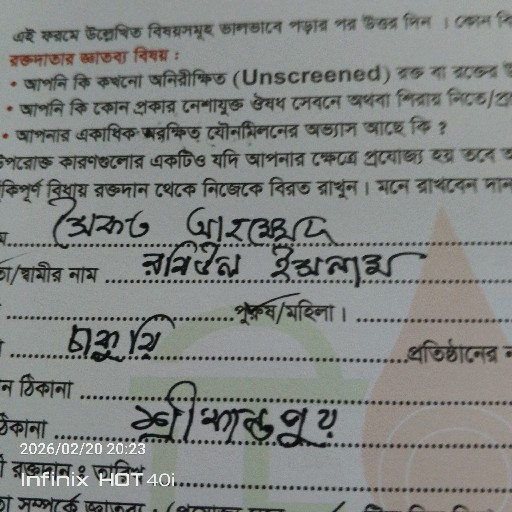 এই ফরমে উল্লেখিত বিষয়সমূহ ভালভাবে পড়ার পর উত্তর দিন । কোন
রক্তদাতার জ্ঞাতব্য বিষয় :
• আপনি কি কখনো অনিরীক্ষিত (Unscreened) রক্ত বা রক্তের
• আপনি কি কোন প্রকার নেশাযুক্ত ঔষধ সেবনে অথবা শিরায় নিতে/
• আপনার একাধিক অরক্ষিত যৌনমিলনের অভ্যাস আছে কি ?
উপরোক্ত কারণগুলোর একটিও যদি আপনার ক্ষেত্রে প্রযোজ্য হয় তবে
বিধায় রক্তদান থেকে নিজেকে বিরত রাখুন । মনে রাখবেন
আহম্মেদ
/স্বামীর নাম রবিউল ইসলাম
পুরুষ/মহিলা ।
চাকুরি প্রতিষ্ঠানের
ঠিকানা
ঠিকানা শ্রীকান্তপুর
2026/02/20 20:23
রক্তদান
Infinix HOT 40i
সম্পর্কে